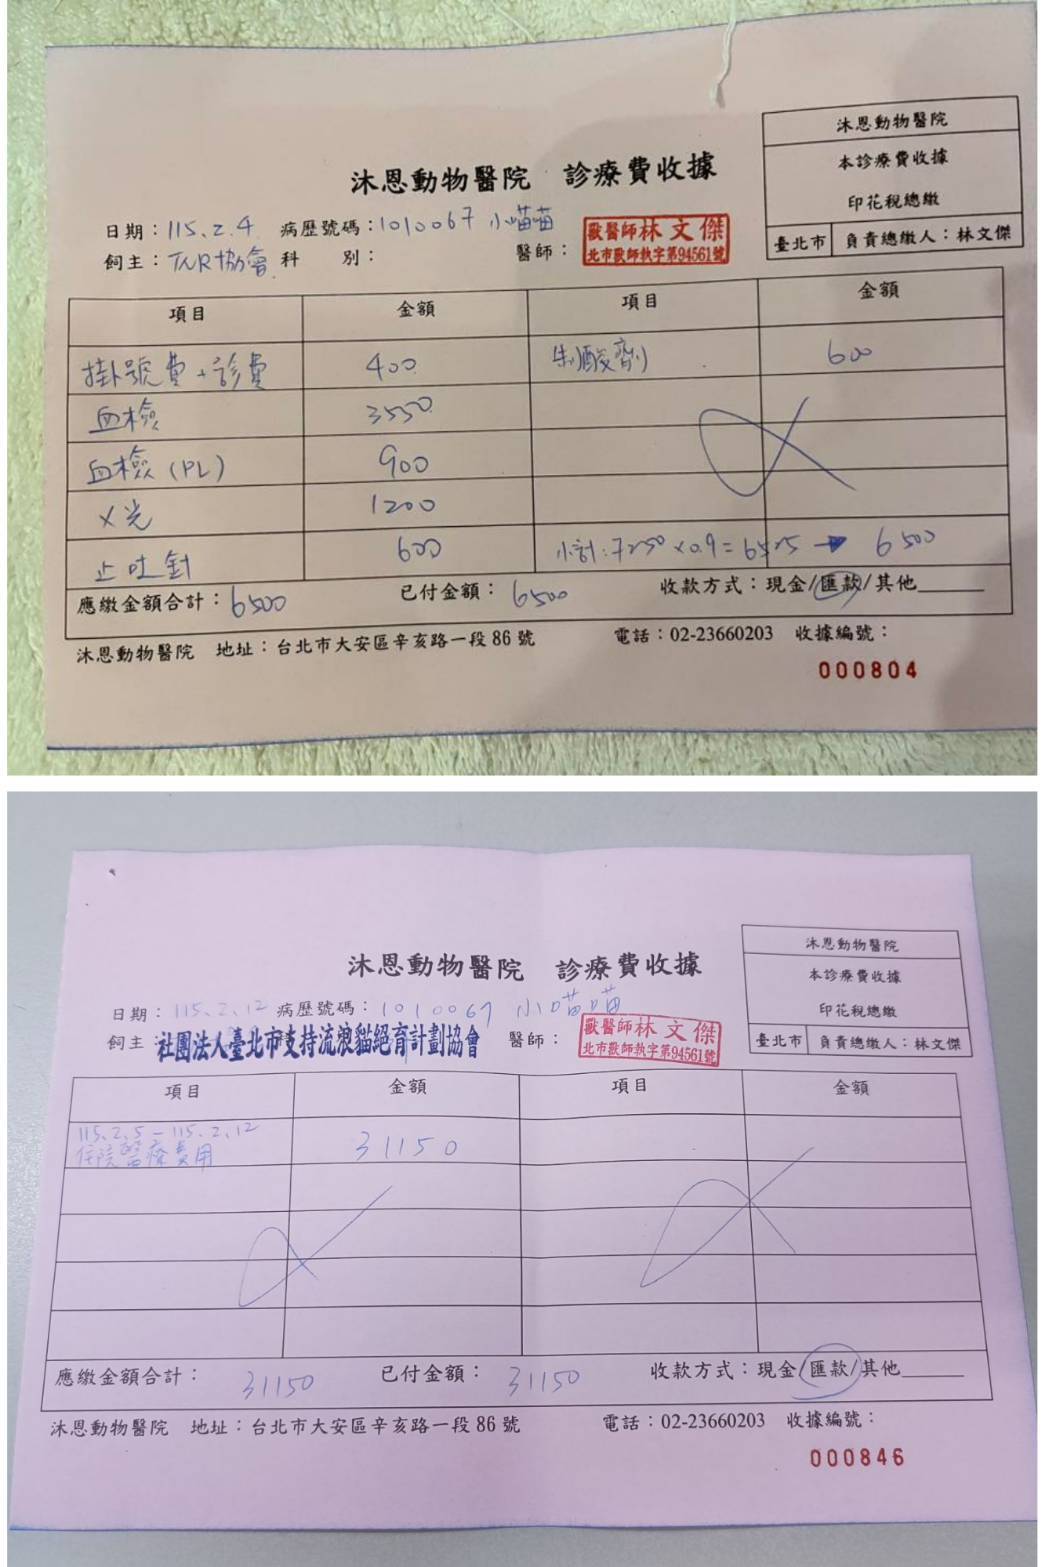 沐恩動物醫院
本診療費收據
印花稅總繳
臺北市 負責總繳人：林文傑
沐恩動物醫院 診療費收據
日期：115.2.4 病歷號碼：1010067 小喵喵
飼主：TNR協會 科 別： 醫師：
獸醫師林文傑
北市獸師執字第94561號
項目 金額 項目 金額
掛號費+診費 400 制酸劑 600
血檢 3550
血檢(PL) 900
X光 1200
止吐針 600 小計:7250×0.9=6525→6500
應繳金額合計：6500 已付金額：6500 收款方式：現金/匯款/其他
沐恩動物醫院 地址：台北市大安區辛亥路一段86號 電話：02-23660203 收據編號：
000804
沐恩動物醫院
本診療費收據
印花稅總繳
臺北市 負責總繳人：林文傑
沐恩動物醫院 診療費收據
日期：115.2.12 病歷號碼：1010067 小喵喵
飼主：社團法人臺北市支持流浪貓絕育計劃協會 醫師：
獸醫師林文傑
北市獸師執字第94561號
項目 金額 項目 金額
115.2.5-115.2.12
住院醫療費用 31150
應繳金額合計：31150 已付金額：31150 收款方式：現金/匯款/其他
沐恩動物醫院 地址：台北市大安區辛亥路一段86號 電話：02-23660203 收據編號：
000846